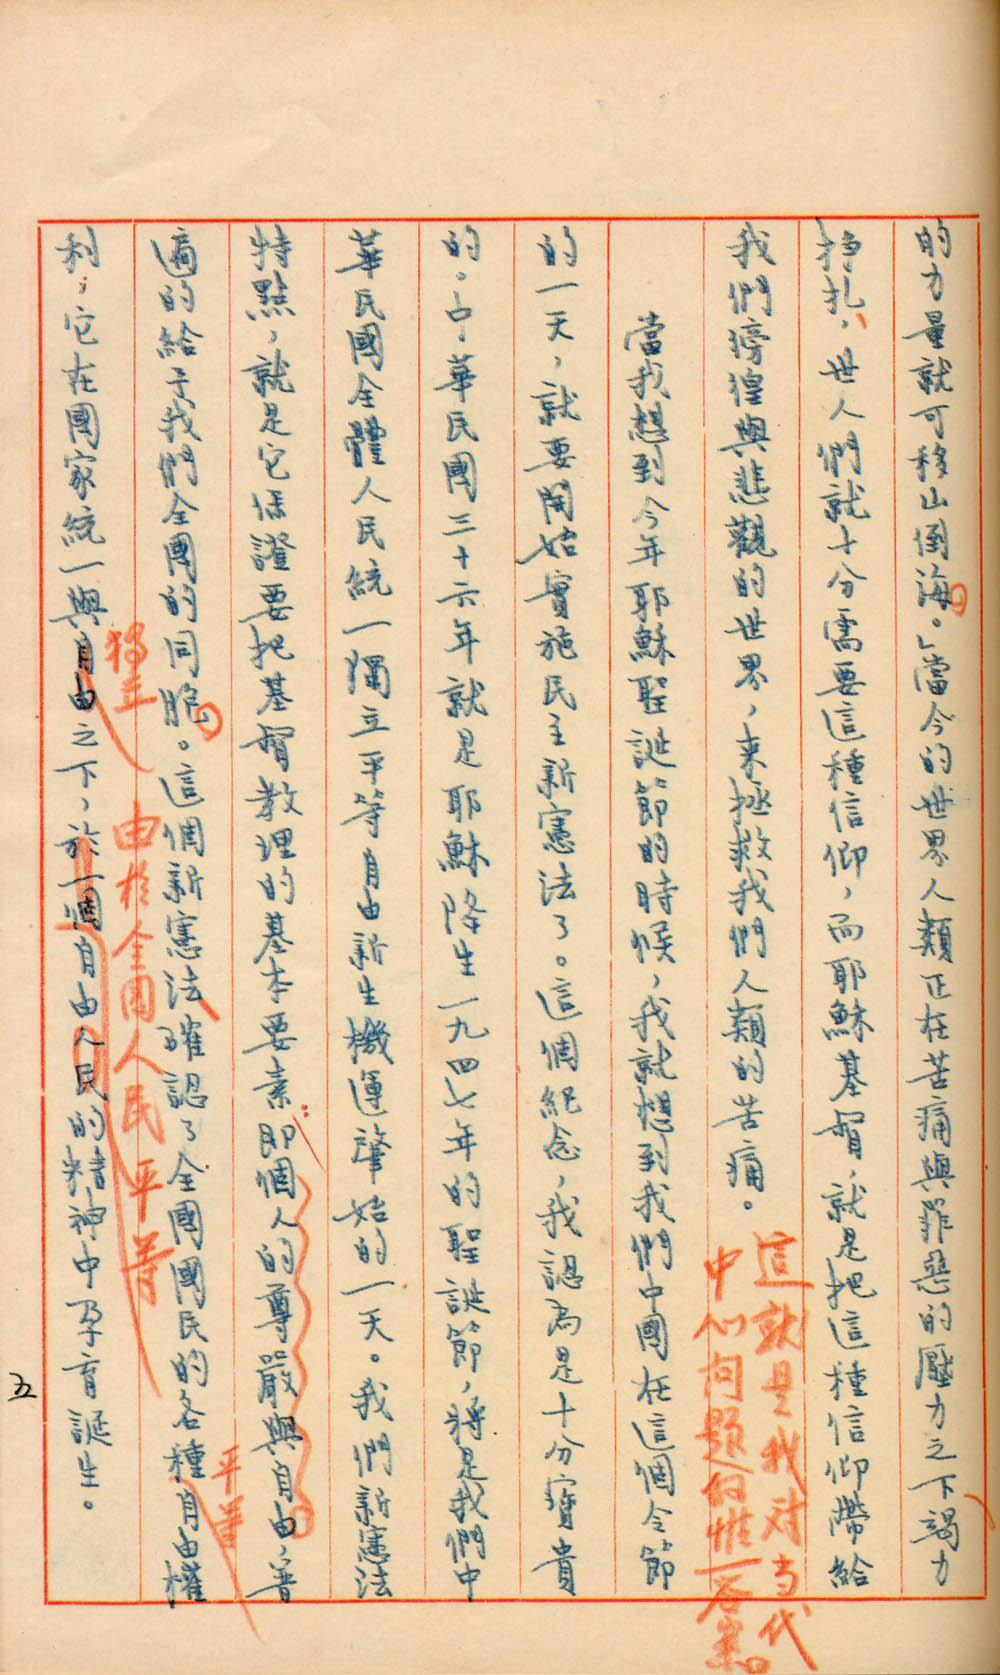 的力量就可移山倒海。」當今的世界人類正在苦痛與罪惡的壓力之下竭力
掙扎，世人們就十分需要這種信仰，而耶穌基督，就是把這種信仰帶給
我們徬徨與悲觀的世界，來拯救我們人類的苦痛。
這就是我对当代
中心问题的惟一答案。
當我想到今年耶穌聖誕節的時候，我就想到我們中國在這個令節
的一天，就要開始實施民主新憲法了。這個紀念，我認為是十分寶貴
的。中華民國三十六年就是耶穌降生一九四七年的聖誕節，將是我們中
華民國全體人民統一獨立平等自由新生機運肇始的一天。我們新憲法
特點，就是它保證要把基督教理的基本要素即個人的尊嚴與自由，普
遍的給予我們全國的同胞。這個新憲法確認了全國國民的各種自由權
平等
利；它在國家統一與自由之下，於一個自由人民的精神中孕育誕生。
獨立
由於全国人民平等
五